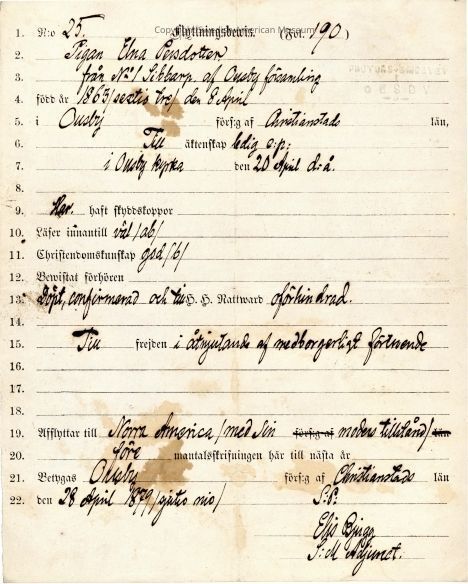 Copyright American Museum
1. N:o 25. Flyttningsbewis. (Fol. 190)
2. Pigan Elna Persdotter
3. från No 1 Sibbarp, af Ousby församling
4. född år 1863/sextio tre/ den 8 April
5. i Ousby förs:g af Christianstads län,
6. Till äktenskap ledig s:p:
7. i Ousby kyrka den 20 April d:å.
8.
9. Har. haft skyddskoppor
10. Läser innantill väl /ab/
11. Christendomskunskap god /b/
12. Bewistat förhören
13. Döpt, confirmerad och till H. H. Nattward oförhindrad.
14.
15. Till frejden i åtnjutande af medborgerligt förtroende
16.
17.
18.
19. Afflyttar till Norra America /med sin förs:g af moders tillstånd/ län
20. före mantalsskrifningen här till nästa år
21. Betygas Ousby förs:g af Christianstads län
22. den 28 April 1879 /sjutio nio/ S:P:
Elis Bjugg
S:M Adjunct.